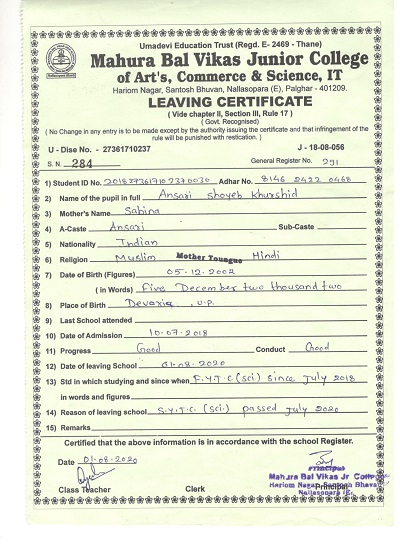 Umadevi Education Trust (Regd. E- 2469 - Thane)
Mahura Bal Vikas Junior College
of Art's, Commerce & Science, IT
Hariom Nagar, Santosh Bhuvan, Nallasopara (E), Palghar - 401209.
LEAVING CERTIFICATE
( Vide chapter II, Section III, Rule 17 )
( Govt. Recognised )
( No Change in any entry is to be made except by the authority issuing the certificate and that infringement of the
rule will be punished with restication. )
U - Dise No. - 27361710237 J - 18-08-056
S. N. 284 General Register No. 291
1) Student ID No. 2018273617102370030 Adhar No. 8146 2422 0468
2) Name of the pupil in full Ansari Shoyeb Khurshid
3) Mother's Name Sabina
4) A-Caste Ansari Sub-Caste
5) Nationality Indian
6) Religion Muslim Mother Toungue Hindi
7) Date of Birth (Figures) 05-12-2002
( in Words) Five December two thousand two
8) Place of Birth Devaria, U.P.
9) Last School attended
10) Date of Admission 10-07-2018
11) Progress Good Conduct Good
12) Date of leaving School 01-08-2020
13) Std in which studying and since when F.Y.J.C (sci) since July 2018
in words and figures
14) Reason of leaving school S.Y.J.C (sci.) passed July 2020
15) Remarks
Certified that the above information is in accordance with the school Register.
Date 01-08-2020
Principal
Mahura Bal Vikas Jr
Hariom Nagar, Santosh Bhava
Principal
Nallasopara (E).
Class Teacher Clerk